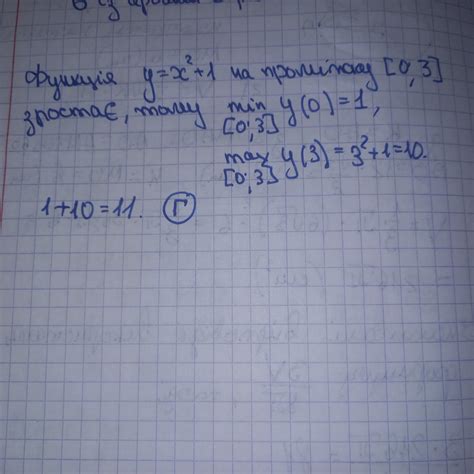 Функція y=x²+1 на проміжку [0;3]
зростає, тому min y(0)=1,
[0;3]
max y(3)=3²+1=10.
[0;3]
1+10=11. Г